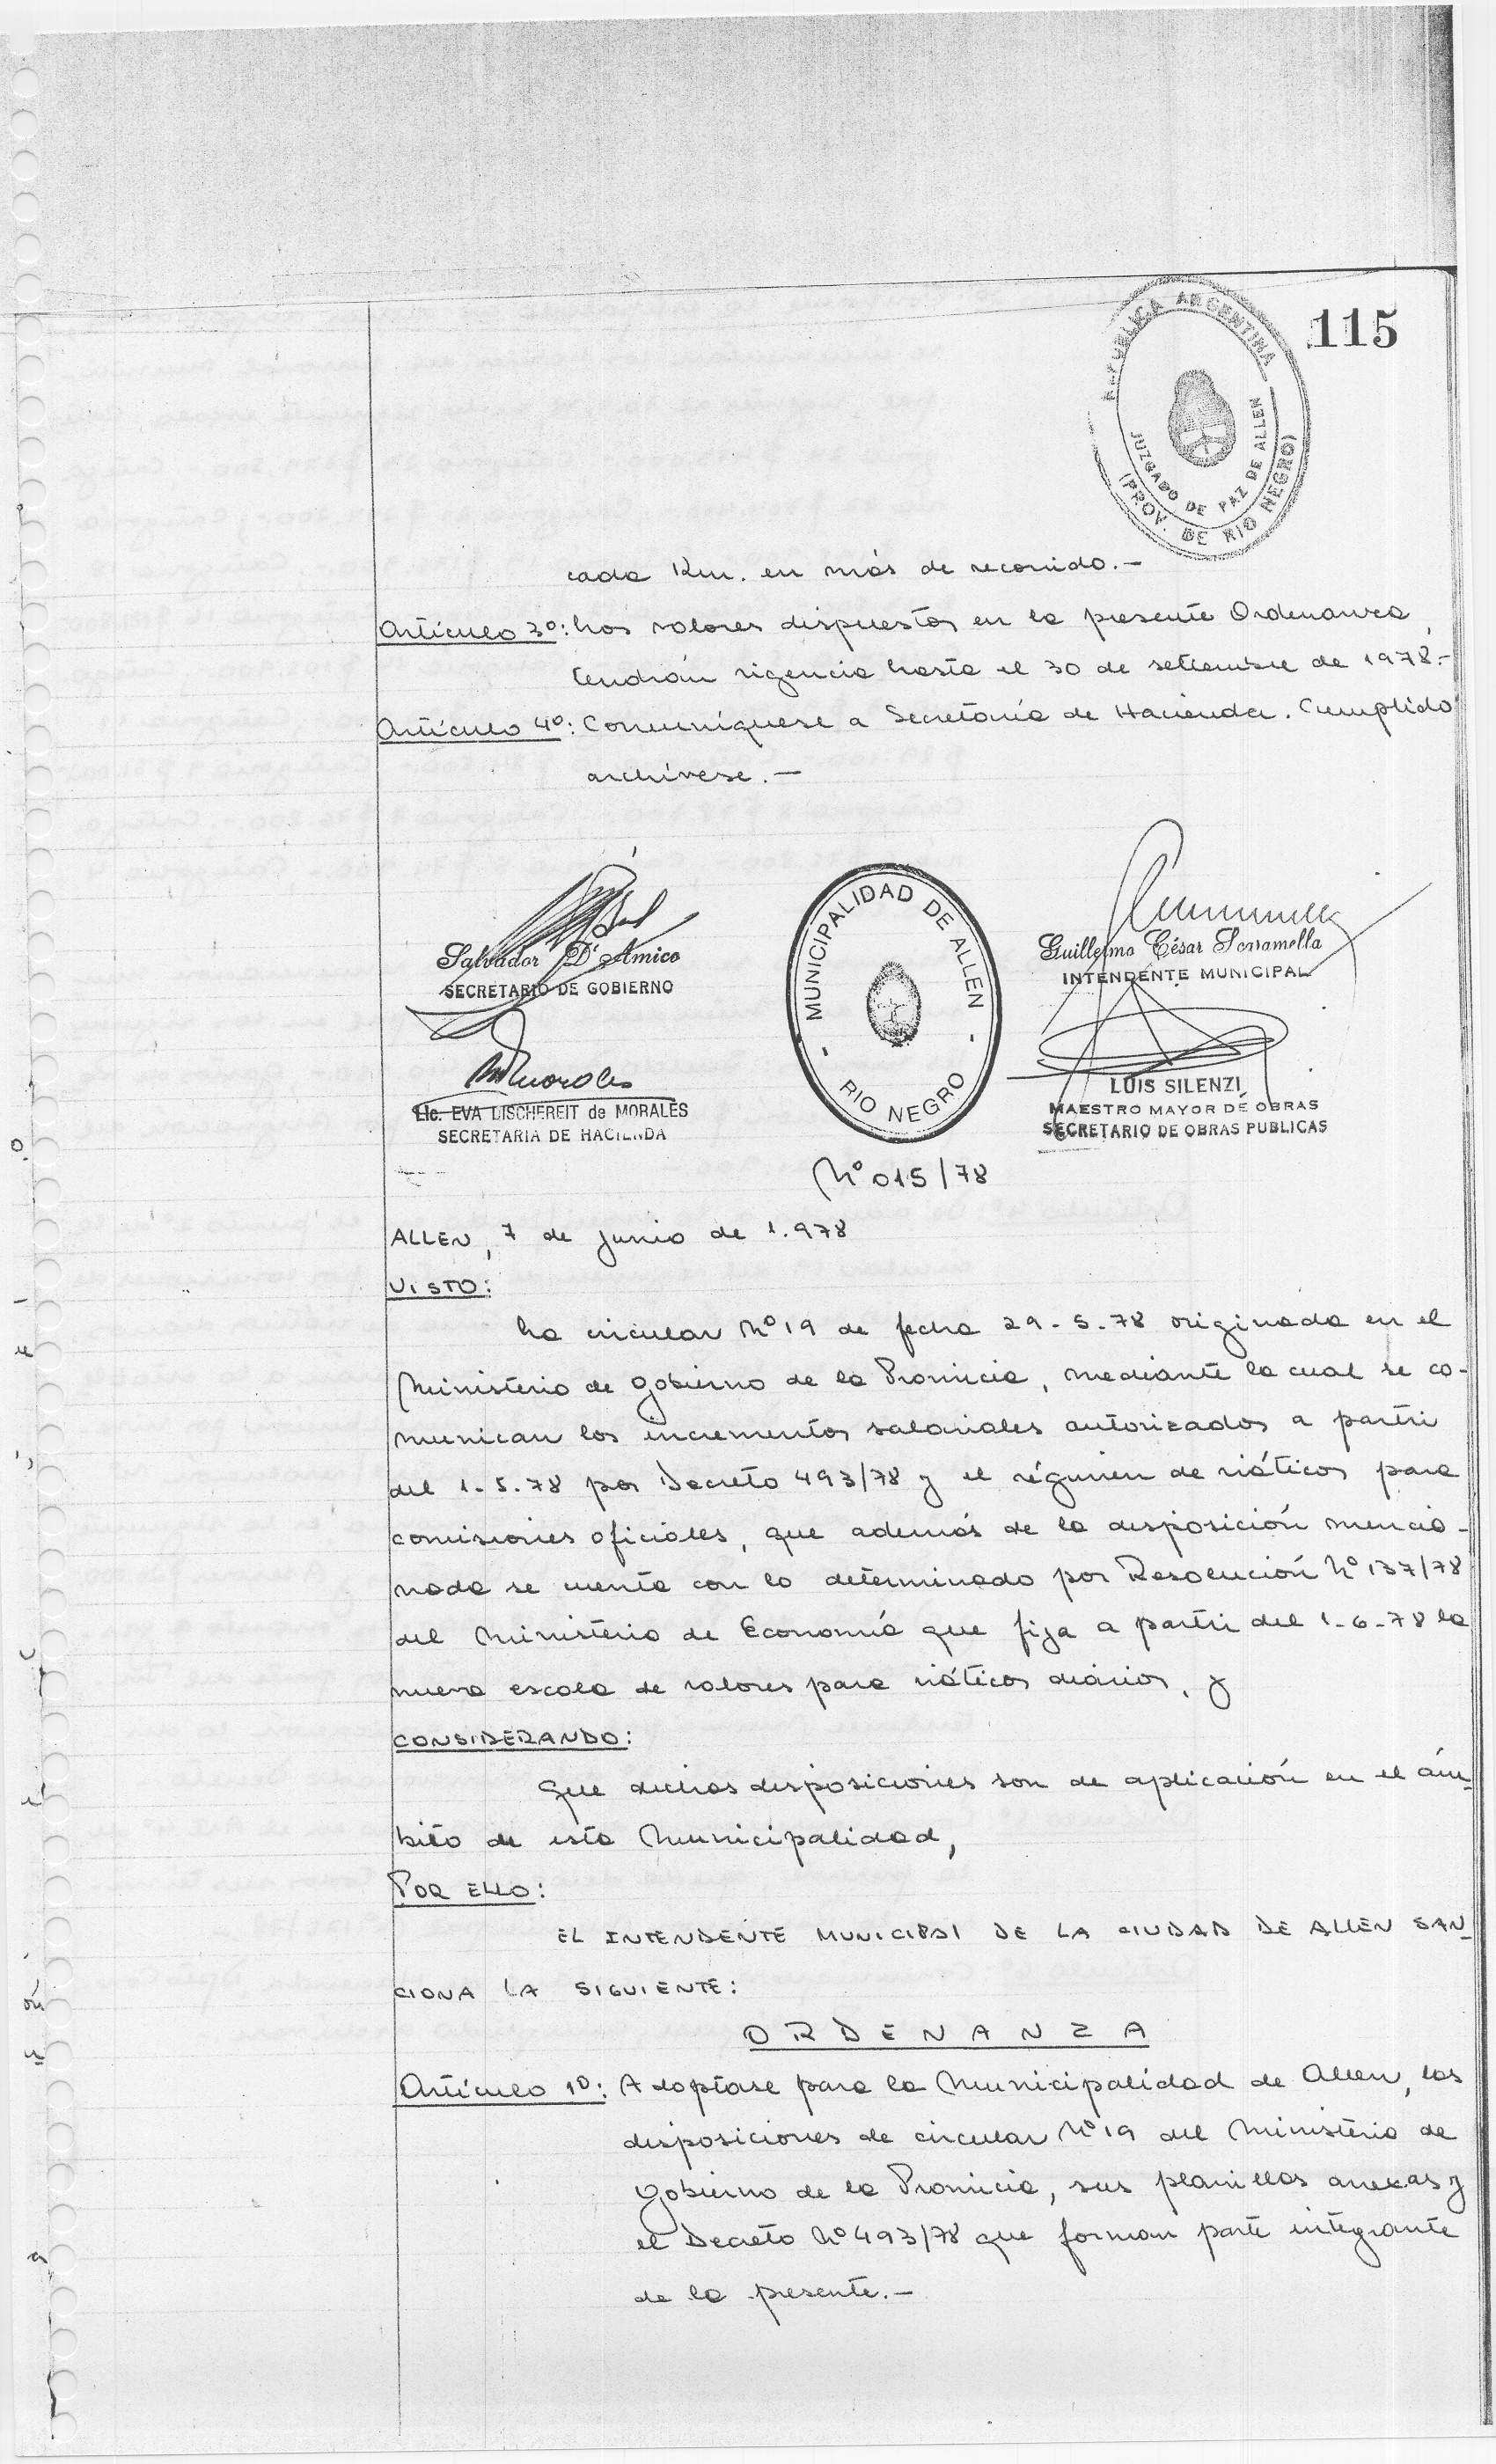 115
REPUBLICA ARGENTINA
JUZGADO DE PAZ DE ALLEN
(PROV. DE RIO NEGRO)
cada Km. en más de recorrido.-
Artículo 3º: Los valores dispuestos en la presente Ordenanza,
tendrán vigencia hasta el 30 de setiembre de 1978.-
Artículo 4º: Comuníquese a Secretaría de Hacienda. Cumplido
archívese.-
Salvador D'Amico
SECRETARIO DE GOBIERNO
Lic. EVA DISCHEREIT de MORALES
SECRETARIA DE HACIENDA
MUNICIPALIDAD DE ALLEN
- RIO NEGRO -
Guillermo César Scaramella
INTENDENTE MUNICIPAL
LUIS SILENZI
MAESTRO MAYOR DE OBRAS
SECRETARIO DE OBRAS PUBLICAS
Nº 015/78
ALLEN, 7 de junio de 1.978
VISTO:
La circular Nº 19 de fecha 29-5-78 originada en el
Ministerio de Gobierno de la Provincia, mediante la cual se co-
munican los incrementos salariales autorizados a partir
del 1-5-78 por Decreto 493/78 y el régimen de viáticos para
comisiones oficiales, que además de la disposición mencio-
nada se cuenta con lo determinado por Resolución Nº 137/78
del Ministerio de Economía que fija a partir del 1-6-78 la
nueva escala de valores para viáticos diarios, y
CONSIDERANDO:
Que dichas disposiciones son de aplicación en el ám-
bito de esta Municipalidad,
POR ELLO:
EL INTENDENTE MUNICIPAL DE LA CIUDAD DE ALLEN SAN-
CIONA LA SIGUIENTE:
ORDENANZA
Artículo 1º: Adoptase para la Municipalidad de Allen, las
disposiciones de circular Nº 19 del Ministerio de
Gobierno de la Provincia, sus planillas anexas y
el Decreto Nº 493/78 que forman parte integrante
de la presente.-